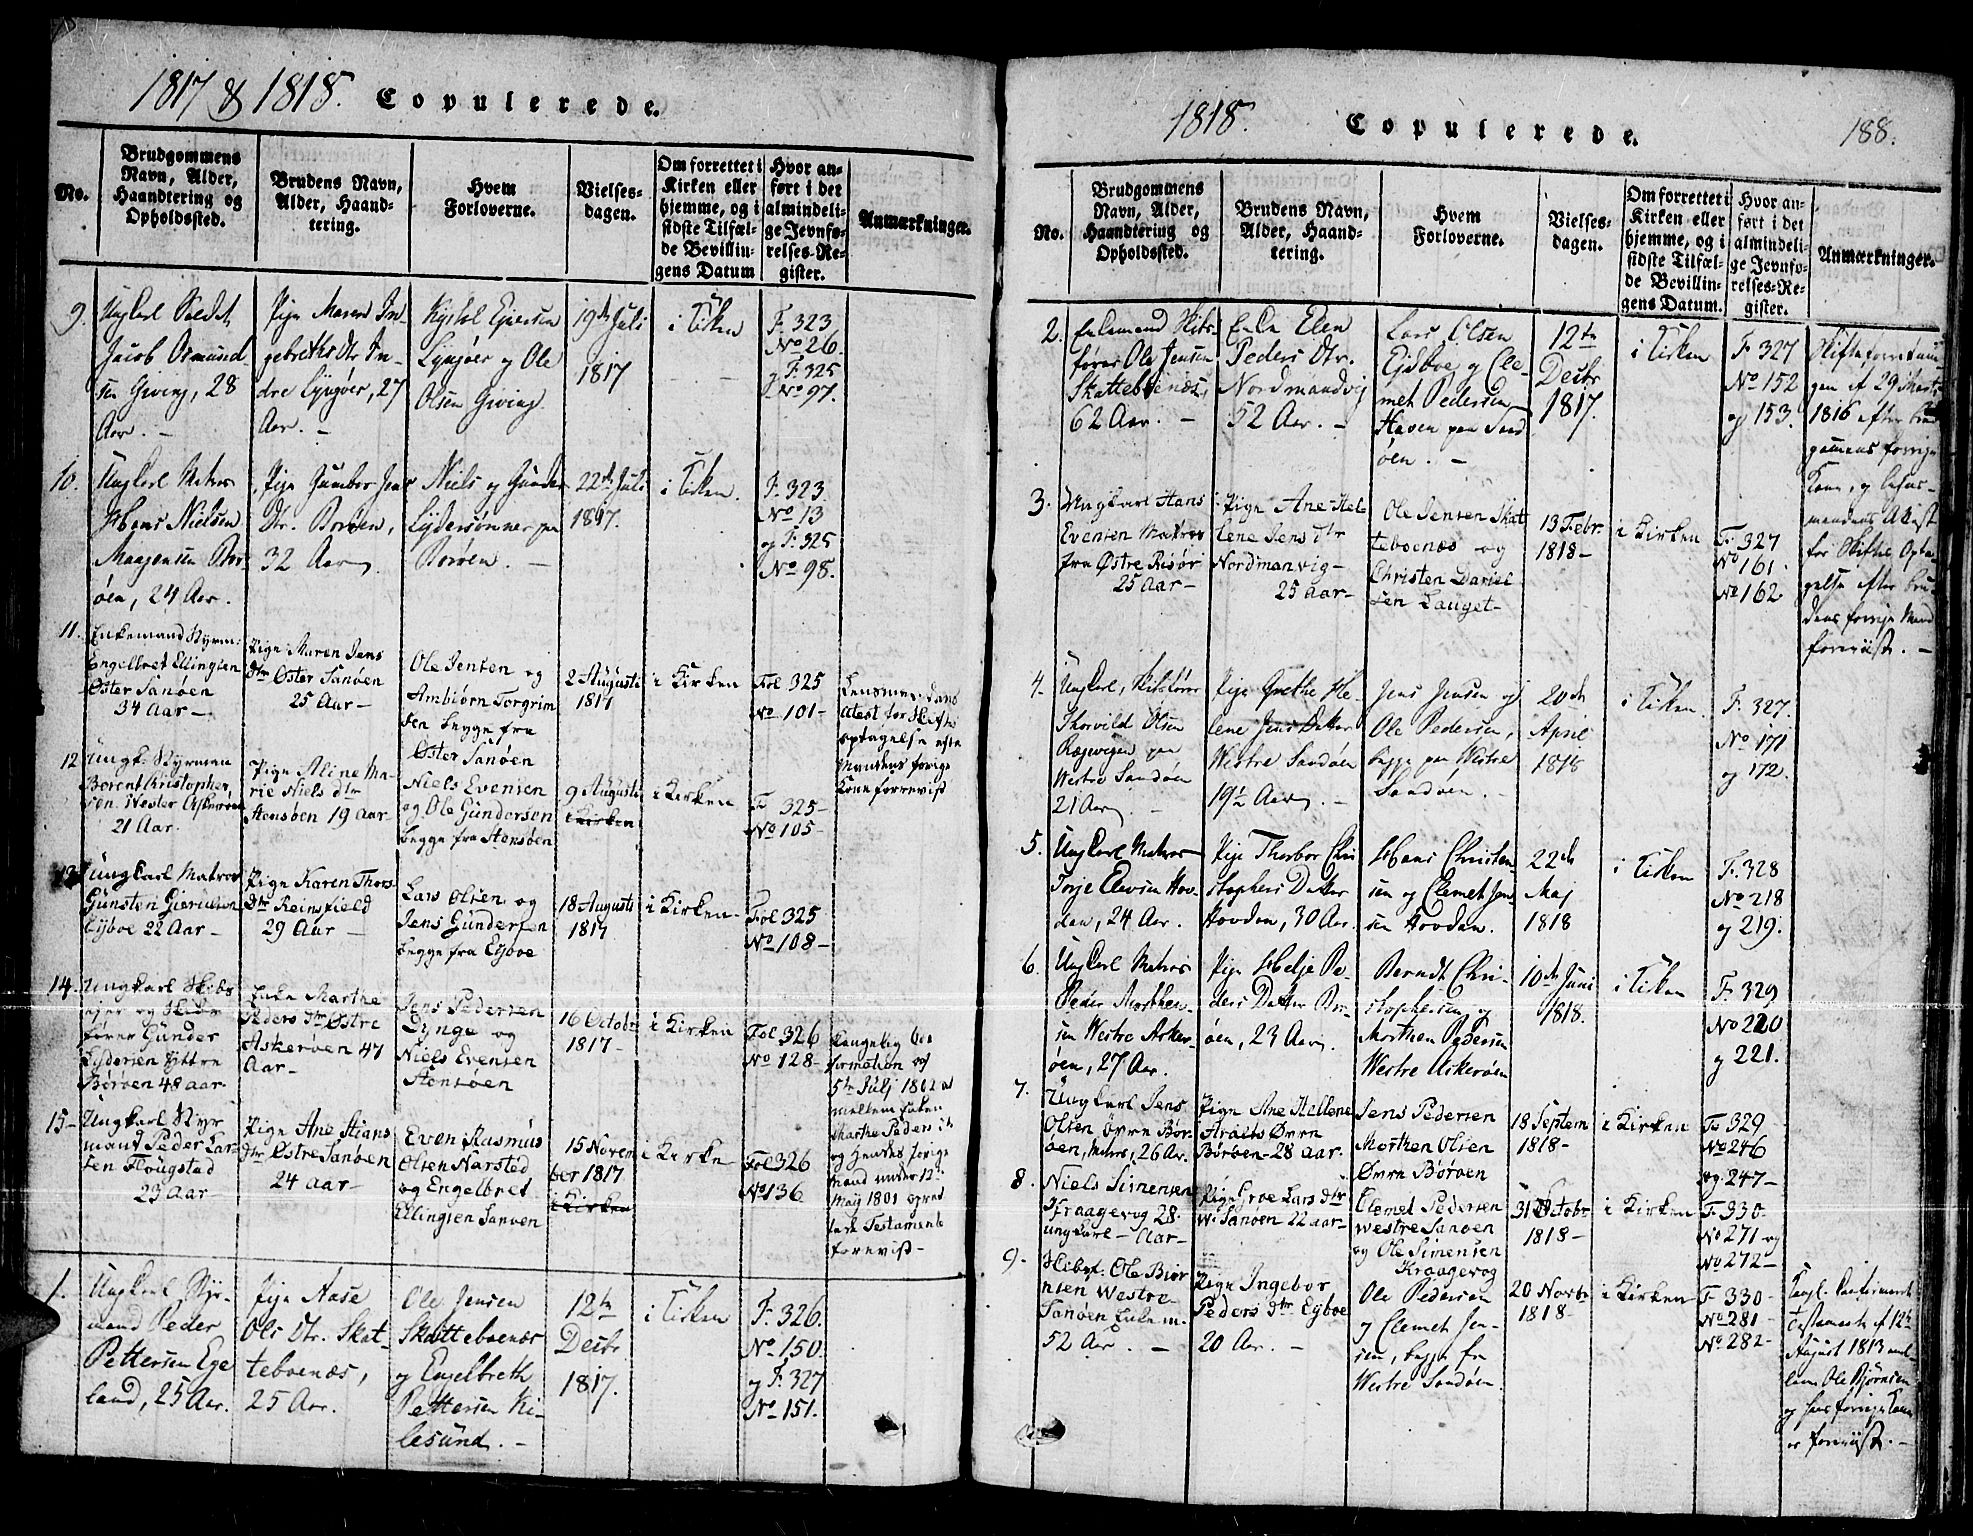 1817 & 1818. Copulerede.
No.
Brudgommens
Navn, Alder,
Haandtering og
Opholdssted.
Brudens Navn,
Alder, Haand-
tering.
Hvem
Forloverne.
Vielses-
dagen.
Om forrettet i
Kirken eller
hjemme, og i
sidste Tilfæl-
de Bevillin-
gens Datum
Hvor an-
ført i det
almindeli-
ge Jevnfø-
relses-Re-
gister.
Anmærkninger.
9.
Ungkarl
Jacob Osmund
sen Giving, 28
Aar. –
Pige Maren In-
gebreths Dtr. In-
dre Lyngöer, 27
Aar. –
Lyngöer og Ole
Olsen Giving
19de Juli
1817
i Kirken
F. 323
No 26.
og F. 325
No 97.
10.
Ungkarl Matros
Hans Nielsen
öen, 24 Aar.
Pige Gunbor Jens
Dtr. Boröen,
32 Aar.
Niels og Gunder
Lydersönner paa
Boröen. –
22de Juli
1817.
i Kirken.
F. 323.
No 13
og F. 325
No 98.
11.
Enkemand Styrm:
Engelbret Ellingsen
Øster Sanøen
34 Aar –
Pige Maren Jens
dtr Øster Sanøen
25 Aar –
Ole Jensen og
Ambiörn Torgrim
sen begge fra
Øster Sanøen
2 Augusti
1817
i Kirken
Fol 325
No 101 –
Atest for Skiftes
optagelse efter
Mandens forrige
Kone forrevist
12
Ungk. Styrman
Berent Christopher,
sen. Vester Askerøen
21 Aar.
Pige Aline Ma-
rie Niels dtr
Stensøen 19 aar
Niels Evensen
og Ole Gundersen
begge fra Stensøen
9 Augusti
i Kirken
i Kirken
Fo 325 –
No 105 –
13
Ungkarl Matros
Eÿboe 22 Aar –
Pige Karen Thors
dtr Reinsfield
29 Aar –
Lars Olsen og
Jens Gundersen
begge fra Eÿboe
18 Augusti
1817
i Kirken –
Fol 325
No 108 –
14.
Ungkarl Skibs
ejer og Skibs
fører Gunder
Lydersen Ÿttre
Børøen 48 aar
Enke Marthe
Peders dtr Østre
Askerøen 47
Aar –
Jens Pedersen
Lynge og
Niels Evensen
Stensøen
16 Octobr
1817 –
i Kirken
Fol 326
No 128 –
formation af
5te Julj 1802 at
mellem Enken
Marthe Peders dtr
og hendes forige
mand under 12
Maÿ 1801 opret
tede Testamente
forevist –
15 –
Ungkarl Styr
mand Peder Lar-
sen Flougstad
23 Aar –
Pige Ane Stians
dtr Østre Sanøen
24 aar –
Even Rasmus
Olsen Narstad
og Engelbret
Ellingsen Sanøen
15 Novem
ber 1817
i Kirken
i Kirken
Fol 326
No 136
1.
Ungkarl Styr-
mand Peder
Pettersen Ege
land, 25 Aar.
Pige Aase
Ols Dtr. Skat
teboenæs,
25 Aar.
Ole Jensen
Skatteboenæs
og Engelbreth
Pettersen Ki-
lesund. –
12te
Decbr.
1817.
i Kirken
F. 326.
No 150
og F. 327
No 151.
1818. Copulerede. 188.
No.
Brudgommens
Navn, Alder,
Haandtering og
Opholdssted.
Brudens Navn,
Alder, Haand-
tering.
Hvem
Forloverne.
Vielses-
dagen.
Om forrettet i
Kirken eller
hjemme, og i
sidste Tilfæl-
de Bevillin-
gens Datum.
Hvor an-
ført i det
almindeli-
ge Jevnfø-
relses-Re-
gister.
Anmærkninger.
2.
Enkemand Skibs-
fører Ole Jensen
Skatteboenæs,
62 Aar. –
Enke Elen
Peders Dtr.
Nordmandvig
52 Aar. –
Lars Olsen
Eydboe, og Cle-
met Pedersen
Haven paa Sand
öen. –
12te
Decbr
1817.
i Kirken
F. 327
No 152
og 153.
Skifteforretnin
gen af 29 Marts
1816 efter Brud
gommens forrige
Kone, og Lehns-
mandens Attest
for Skifte Opta-
gelse efter Bru-
dens forrige Mand
foreviist. –
3.
Ungkarl Hans
Evensen Matros
fra Østre Risør
25 Aar –
Pige Ane Hel
lene Jens dtr
Nordmanvig –
25 aar –
Ole Jensen Skat
teboenæs og
Christen Daniel
sen Lauget –
13 Febr.
1818 –
i Kirken
Fo 327
No 161.
No 162
4.
Ungkarl, Skibsfører
Thorvild Olsen
Ragevigen paa
Westre Sandöen
21 Aar. –
Pige Grethe He-
lene Jens Datter
Westre Sandöen
19½ Aar. –
Jens Jensen og
Ole Pedersen,
begge paa Westre
Sandöen. –
20de
April
1818
i Kirken.
F. 327.
No 171
og 172.
5.
Ungkarl Matros
Torje Elevsen Hov-
den, 24 Aar.
Pige Thorbor Chri
stophers Datter
Hovden, 30 Aar.
Hans Christen-
sen og Clemet Jen
sen Hovden.
22de
Maj
1818
i Kirken
F. 328
No 218
og 219.
6.
Ungkarl Matros
Peder Morthen-
sen Westre Asker-
öen, 27 Aar.
Pige Helje Pe-
ders Datter Bor-
öen, 23 Aar.
Berndt Chri-
stophersen og
Morthen Pedersen
Westre Askeröen
10de Juni
1818.
i Kirken
F. 329
No 220
og 221.
7.
Ungkarl Jens
Olsen øvre Bør-
øen, Matros, 26 Ar.
Pige Ane Hellene
Aralts Øvre
Børøen – 28 aar.
Jens Pedersen
Morthen Olsen
Øvre Børøen
18 Septem
1818 –
i Kirken
Fo 329
No 246
og 247 –
8.
Niels Simensen
Kraagevog 28
ungkarl – Aar –
Pige Groe Lars dtr
W. Sanøen 22 aar –
Clemet Pedersen
Westre Sanøen
og Ole Simensen
Kraagevog
31 Octobr
1818 –
i Kirken
F. 330
No 271 og
No 272 –
9.
Skibsf. Ole Biør
nsen Westre
Sanøen Enkem.
52 Aar. –
Pige Ingebor
Peders dtr Eÿboe
20 Aar. –
Ole Pedersen
og Clemet Jen-
sen, begge fra
Westre Sandöen.
20 Novbr
1818 –
i Kirken
F. 330 –
No 281 –
No 282 –
Kongl. Confirmerede
Testamente af 12te
August 1813 mel-
lem Ole Björnsen
og hans forrige Kone
er foreviist. –